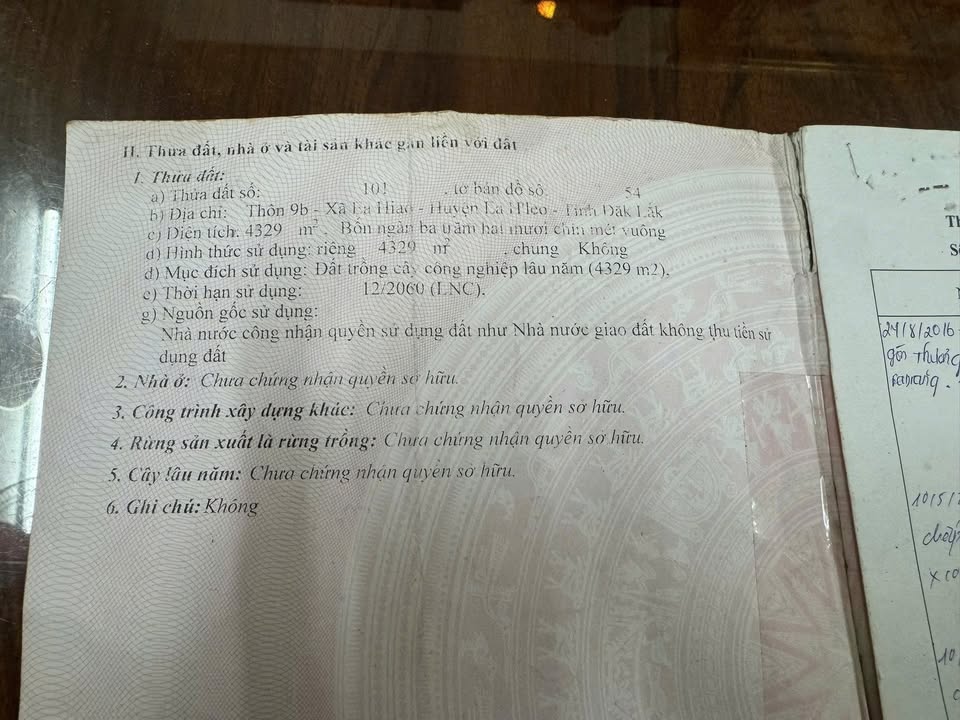 II. Thửa đất, nhà ở và tài sản khác gắn liền với đất
1. Thửa đất:
a) Thửa đất số: 101 , tờ bản đồ số: 54
b) Địa chỉ: Thôn 9b - Xã Ea Hiao - Huyện Ea H'leo - Tỉnh Đăk Lắk
c) Diện tích: 4329 m², Bốn ngàn ba trăm hai mươi chín mét vuông
d) Hình thức sử dụng: riêng 4329 m² , chung Không
đ) Mục đích sử dụng: Đất trồng cây công nghiệp lâu năm (4329 m2).
e) Thời hạn sử dụng: 12/2060 (LNC).
g) Nguồn gốc sử dụng:
Nhà nước công nhận quyền sử dụng đất như Nhà nước giao đất không thu tiền sử
dụng đất
2. Nhà ở: Chưa chứng nhận quyền sở hữu.
3. Công trình xây dựng khác: Chưa chứng nhận quyền sở hữu.
4. Rừng sản xuất là rừng trồng: Chưa chứng nhận quyền sở hữu.
5. Cây lâu năm: Chưa chứng nhận quyền sở hữu.
6. Ghi chú: Không
Th
Số
N
24/8/2016
10/5/
10